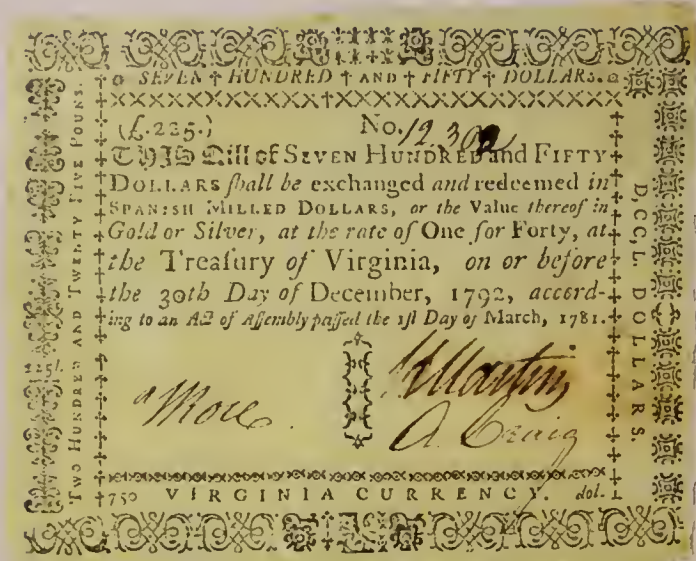 SEVEN † HUNDRED † AND † FIFTY † DOLLARS.
(£.225.) No. 12 302
THIS Bill of SEVEN HUNDRED and FIFTY
DOLLARS ſhall be exchanged and redeemed in
SPANISH MILLED DOLLARS, or the Value thereof in
Gold or Silver, at the rate of One for Forty, at
the Treaſury of Virginia, on or before
the 30th Day of December, 1792, accord-
ing to an Act of Aſſembly paſſed the 1ſt Day of March, 1781.
Martin
A. Craig
750 VIRGINIA CURRENCY. dol.
TWO HUNDRED AND TWENTY FIVE POUNDS.
D,CC,L. DOLLARS.